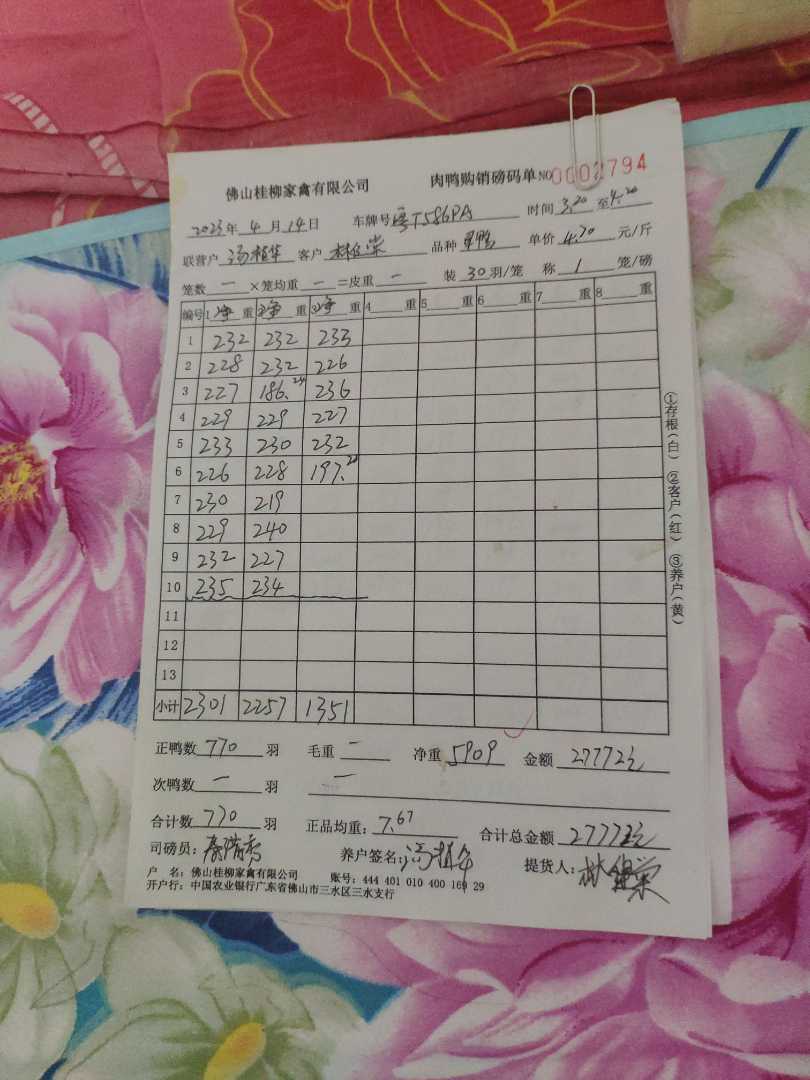 佛山桂柳家禽有限公司 肉鸭购销磅码单 NO 0002794
2023年 4 月 14日 车牌号 粤T586PA 时间 3.20 至 4.20
联营户 汤植华 客户 品种 鸭 单价 4.70 元/斤
笼数 一 ×笼均重 一 =皮重 一 装 30 羽/笼 称 1 笼/磅
编号 1 净 重 2 净 重 3 净 重 4 重 5 重 6 重 7 重 8 重
1 232 232 233
2 228 232 226
3 227 186. 236
4 229 229 227
5 233 230 232
6 226 228 197.
7 230 219
8 229 240
9 232 227
10 235 234
11
12
13
小计 2301 2257 1351
正鸭数 770 羽 毛重 一 净重 5909 金额 27772元
次鸭数 一 羽 一
合计数 770 羽 正品均重: 7.67 合计总金额 27772元
司磅员: 养户签名: 提货人:
户 名: 佛山桂柳家禽有限公司 账号: 444 401 010 400 169 29
开户行: 中国农业银行广东省佛山市三水区三水支行
①存根(白) ②客户(红) ③养户(黄)